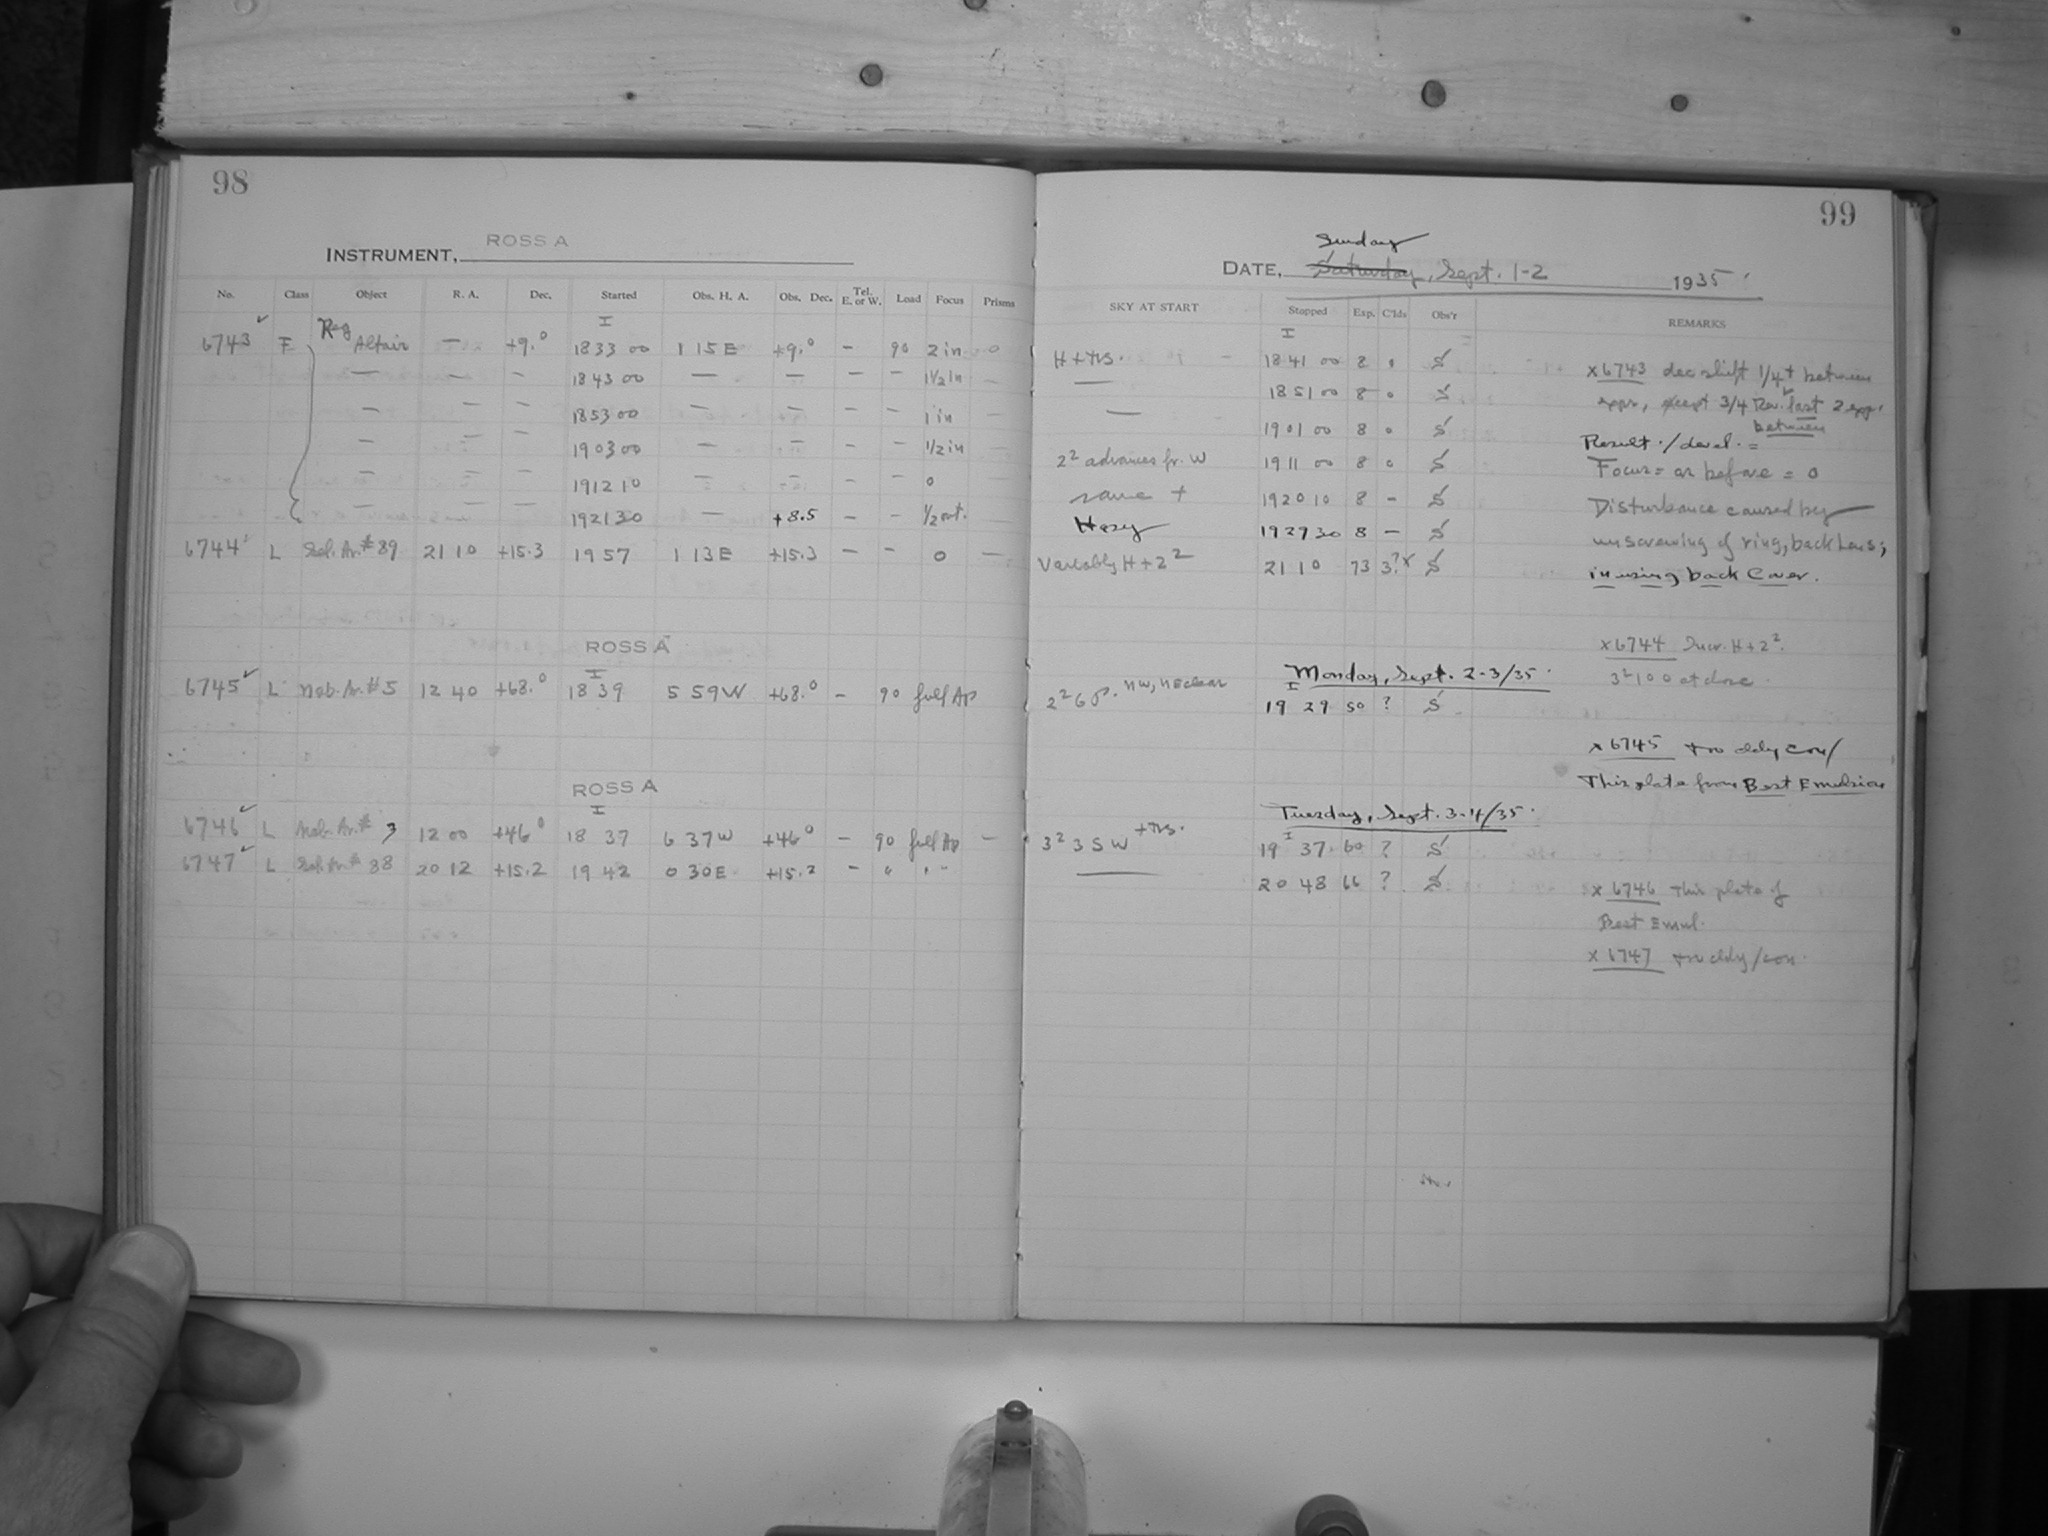 98
INSTRUMENT, ROSS A
No. Class Object R. A. Dec. Started Obs. H. A. Obs. Dec. Tel. E. or W. Load Focus Prisms
6743 F Reg Altair — +9.° 18 33 00 1 15 E +9.° — 90 2 in
— — — 18 43 00 — — — — 1 1/2 in
— — — 18 53 00 — — — — 1 in
— — — 19 03 00 — — — — 1/2 in
— — — 19 12 10 — — — — 0
— — — 19 21 30 — +8.5 — — 1/2 out.
6744 L Sel. Ar. # 89 21 10 +15.3 19 57 1 13 E +15.3 — — 0 —
ROSS A
6745 L Nob. Ar. # 5 12 40 +68.° 18 39 5 59 W +68.° — 90 full Ap
ROSS A
6746 L Nob. Ar. # 3 12 00 +46° 18 37 6 37 W +46° — 90 full Ap —
6747 L Sel. Ar. # 88 20 12 +15.2 19 42 0 30 E +15.2 — " " "
99
DATE, Saturday Sunday, Sept. 1-2 1935
SKY AT START Stopped Exp. C'lds Obs'r REMARKS
H + 18 41 00 8 0 S
— 18 51 00 8 0 S
— 19 01 00 8 0 S
2² advances fr. W 19 11 00 8 0 S
same + 19 20 10 8 — S
Hazy 19 29 30 8 — S
Variably H + 2² 21 10 73 3?x S
x 6743 dec shift 1/4 + between
exps, except 3/4 Rev. last 2 exps.
between
Result / devel. =
Focus = as before = 0
Disturbance caused by
unscrewing of ring, back Lens;
in using back Cover.
x 6744 Incr. H + 2².
3² 100 at close
Monday, Sept. 2-3/35.
2² 6 P. NW, NE clear 19 29 50 ? S
x 6745
This plate from Best Emulsion
Tuesday, Sept. 3-4/35.
3² 3 SW 19 37 60 ? S
— 20 48 66 ? S
x 6746 This plate of
Best Emul.
x 6747